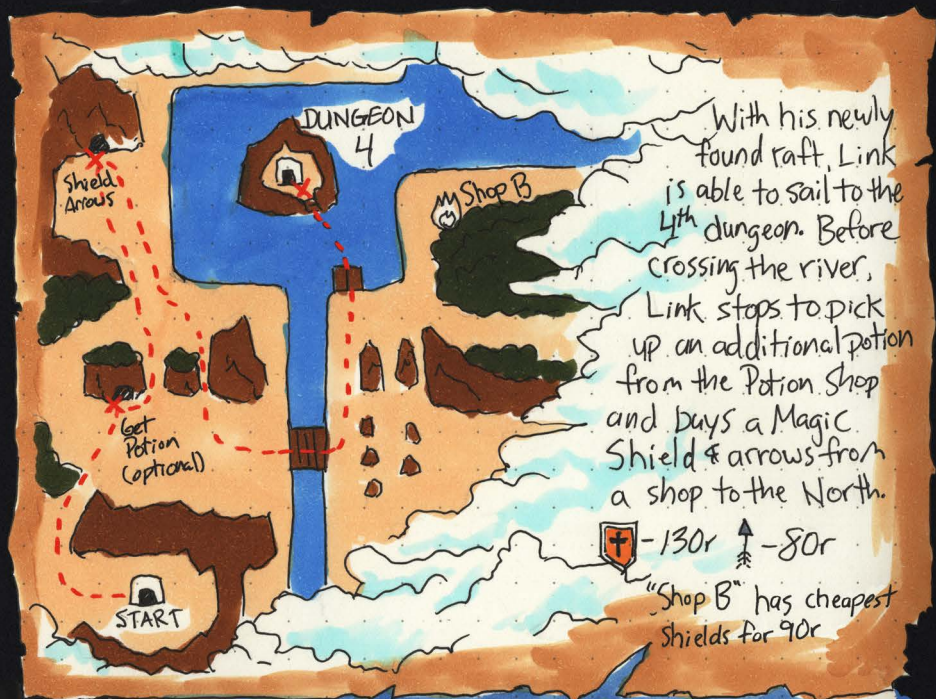 DUNGEON
4
Shield
Arrows
Shop B
Get
Potion
(optional)
START
With his newly
found raft, Link
is able to sail to the
4th dungeon. Before
crossing the river,
Link stops to pick
up an additional potion
from the Potion Shop
and buys a Magic
Shield & arrows from
a shop to the North.
-130r -80r
"Shop B" has cheapest
shields for 90r